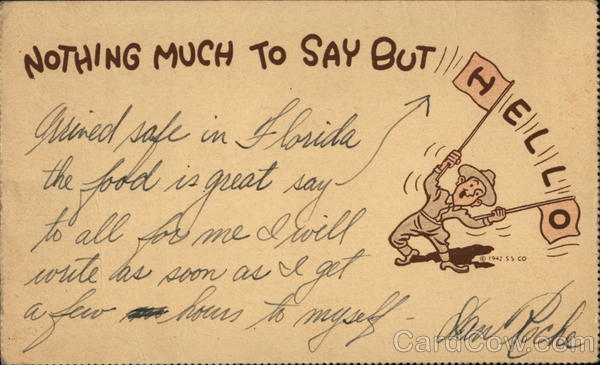 NOTHING MUCH TO SAY BUT HELLO
Arrived safe in Florida
the food is great say
to all for me I will
write as soon as I get
a few hours to myself -
© 1942 S S CO
CardCow.com